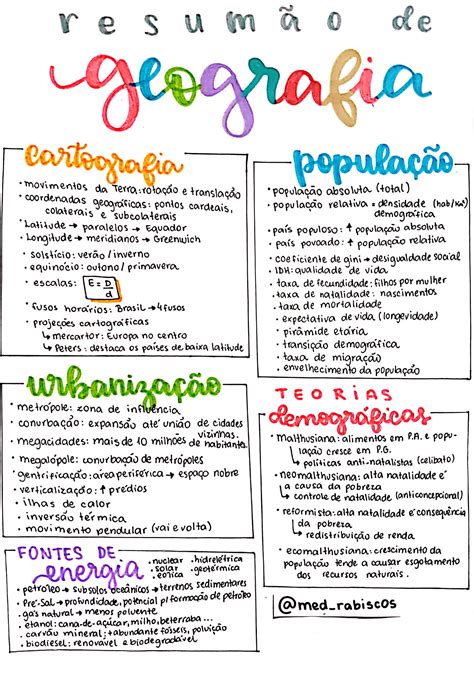 resumão de
geografia
cartografia
• movimentos da Terra: rotação e translação
• coordenadas geográficas: pontos cardeais,
colaterais e subcolaterais
• Latitude → paralelos → Equador
• Longitude → meridianos → Greenwich
• solstício: verão / inverno
• equinócio: outono / primavera
• escalas: E = D/d
• fusos horários: Brasil → 4 fusos
• projeções cartográficas
↳ mercartor: Europa no centro
↳ Peters: destaca os países de baixa latitude
população
• população absoluta (total)
• população relativa = densidade (hab/km²)
demográfica
• país populoso: ↑ população absoluta
• país povoado: ↑ população relativa
• coeficiente de gini → desigualdade social
• IDH: qualidade de vida
• taxa de fecundidade: filhos por mulher
• taxa de natalidade: nascimentos
• taxa de mortalidade
• expectativa de vida (longevidade)
• pirâmide etária
• transição demográfica
• taxa de migração
• envelhecimento da população
urbanização
• metrópole: zona de influência
• conurbação: expansão até união de cidades
vizinhas.
• megacidades: mais de 10 milhões de habitantes
• megalópole: conurbação de metrópoles
• gentrificação: área periférica → espaço nobre
• verticalização: ↑ prédios
• ilhas de calor
• inversão térmica
• movimento pendular (vai e volta)
TEORIAS
demográficas
• malthusiana: alimentos em P.A. e popu-
lação cresce em P.G.
↳ políticas anti-natalistas (celibato)
• neomalthusiana: alta natalidade é
a causa da pobreza
↳ controle de natalidade (anticoncepcional)
• reformista: alta natalidade é consequência
da pobreza
↳ redistribuição de renda
• ecomalthusiana: crescimento da
população tende a causar esgotamento
dos recursos naturais.
FONTES DE
energia
• nuclear • hidrelétrica
• solar • geotérmica
• eólica
• petróleo → subsolos oceânicos → terrenos sedimentares
• Pré-Sal → profundidade, potencial p/ formação de petróleo
• gás natural → menos poluente
• etanol: cana-de-açúcar, milho, beterraba...
• carvão mineral: + abundante fósseis, poluição
• biodiesel: renovável e biodegradável
@med_rabiscos